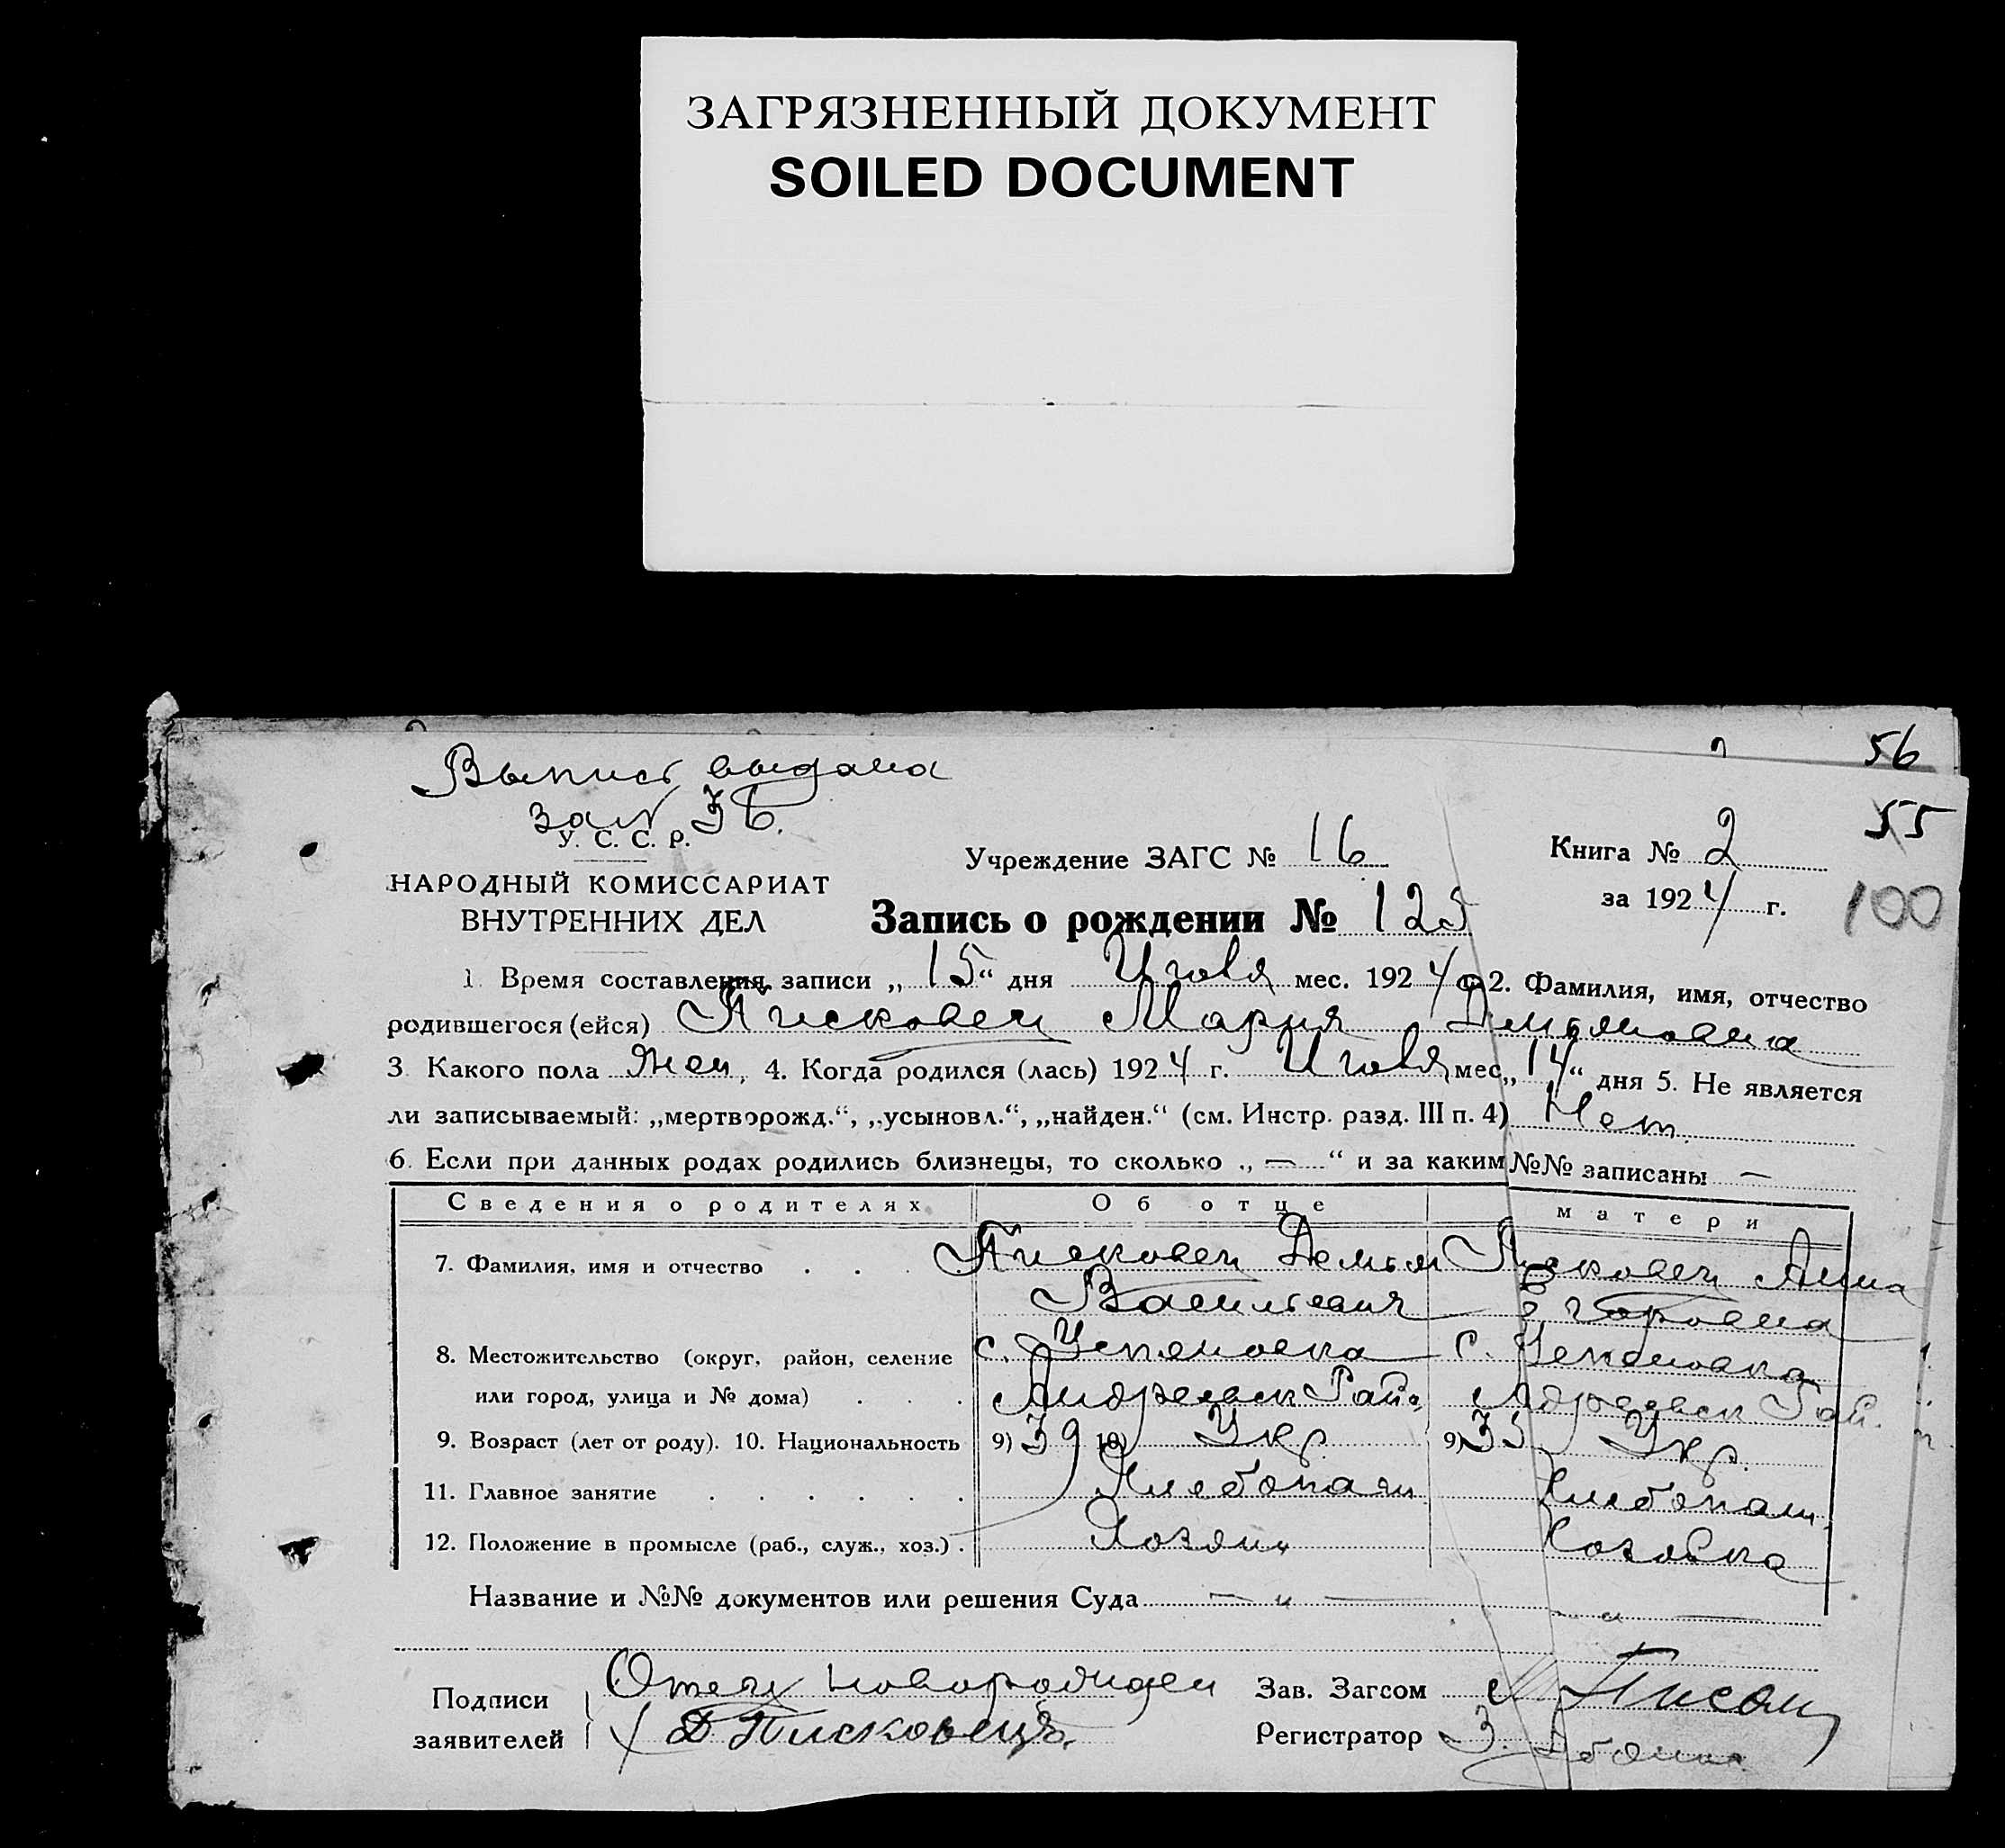 ЗАГРЯЗНЕННЫЙ ДОКУМЕНТ
SOILED DOCUMENT
56
Выпись выдана
за № 36.
У. С. С. Р.
НАРОДНЫЙ КОМИССАРИАТ
ВНУТРЕННИХ ДЕЛ
Учреждение ЗАГС № 16
Книга № 2
55
за 1924 г.
100
Запись о рождении № 125
1. Время составления записи „15“ дня Июля мес. 1924 г. 2. Фамилия, имя, отчество
родившегося (ейся) Писковец Мария Демьяновна
3. Какого пола Жен, 4. Когда родился (лась) 1924 г. Июля мес. „14“ дня 5. Не является
ли записываемый: „мертворожд.“, „усыновл.“, „найден.“ (см. Инстр. разд. III п. 4) Нет.
6. Если при данных родах родились близнецы, то сколько „—“ и за каким №№ записаны —
Сведения о родителях. Об отце матери
7. Фамилия, имя и отчество . . . Писковец Демьян Писковец Анна
Васильевич Егоровна
8. Местожительство (округ, район, селение с. Успеновка с. Успеновка
или город, улица и № дома) . . . Андреевск Рай. Адреевск Рай.
9. Возраст (лет от роду). 10. Национальность 9) 39 10) Укр. 9) 35 Укр.
11. Главное занятие . . . . . . Хлебопаш. Хлебопаш.
12. Положение в промысле (раб., служ., хоз.) . Хозяин Хозяйка
Название и №№ документов или решения Суда — „ — — „ —
Подписи Отец новорожден Зав. Загсом
заявителей Д. Писковецъ. Регистратор